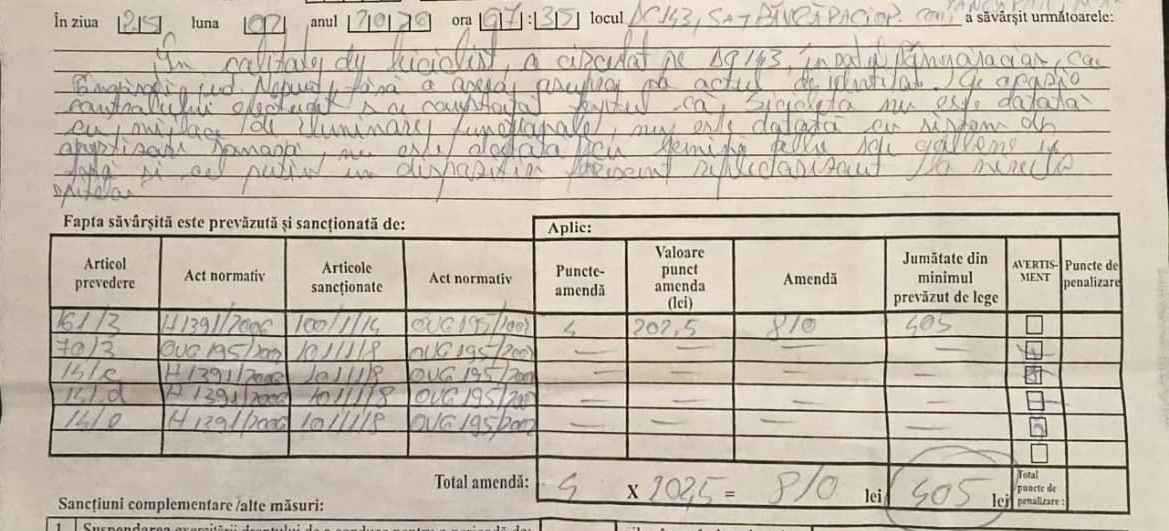 În ziua 25 luna 02 anul 2026 ora 07:35 locul DC143, SAT a săvârșit următoarele:
În calitate de biciclist, a circulat pe DC143, în satul
jud. fără a avea asupra sa actul de identitate. Cu ocazia
controlului efectuat s-a constatat faptul că, bicicleta nu este dotată
cu mijloace de iluminare funcționale, nu este dotată cu sistem de
avertizare sonoră, nu este dotată cu lumină albă sau galbenă în
față și cel puțin un dispozitiv fluorescent reflectorizant la nivelul
spițelor
Fapta săvârșită este prevăzută și sancționată de: Aplic:
Articol prevedere Act normativ Articole sancționate Act normativ Puncte-amendă Valoare punct amenda (lei) Amendă Jumătate din minimul prevăzut de lege AVERTIS-MENT Puncte de penalizare
161/3 H 1391/2006 100/1/14 OUG 195/2002 4 202,5 810 405
70/3 OUG 195/2002 101/1/18 OUG 195/2002 — — — —
14/c H 1391/2006 101/1/18 OUG 195/2002 — — — —
14/d H 1391/2006 101/1/18 OUG 195/2002 — — — —
14/e H 1391/2006 101/1/18 OUG 195/2002 — — — —
Total amendă: 4 X 202,5 = 810 lei 405 lei Total puncte de penalizare:
Sancțiuni complementare /alte măsuri:
1. Suspendarea exercitării dreptului de a conduce pentru o perioadă de: